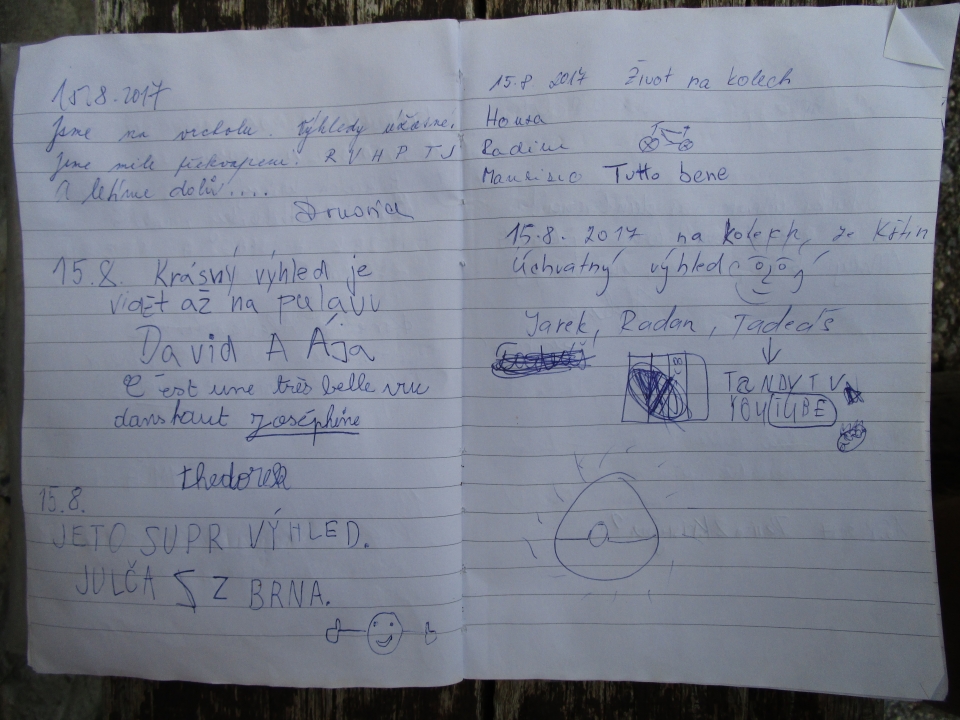 15.8.2017
Jsme na vrcholu. Výhledy úžasné.
Jsme mile překvapeni. R V H P T J
A letíme dolů....
15.8. Krásný výhled je
vidět až na palavu
David A Ája
C'est une très belle vu
danshaut Joséphine
thedorek
15.8.
JETO SUPR VÝHLED.
JULČA S Z BRNA.
15.8 2017 Život na kolech
Honza
Radim
Maurizio Tutto bene
15.8. 2017 na kolech, ze
Úchvatný výhled
Jarek, Radan, Tadeáš
YOUTUBE